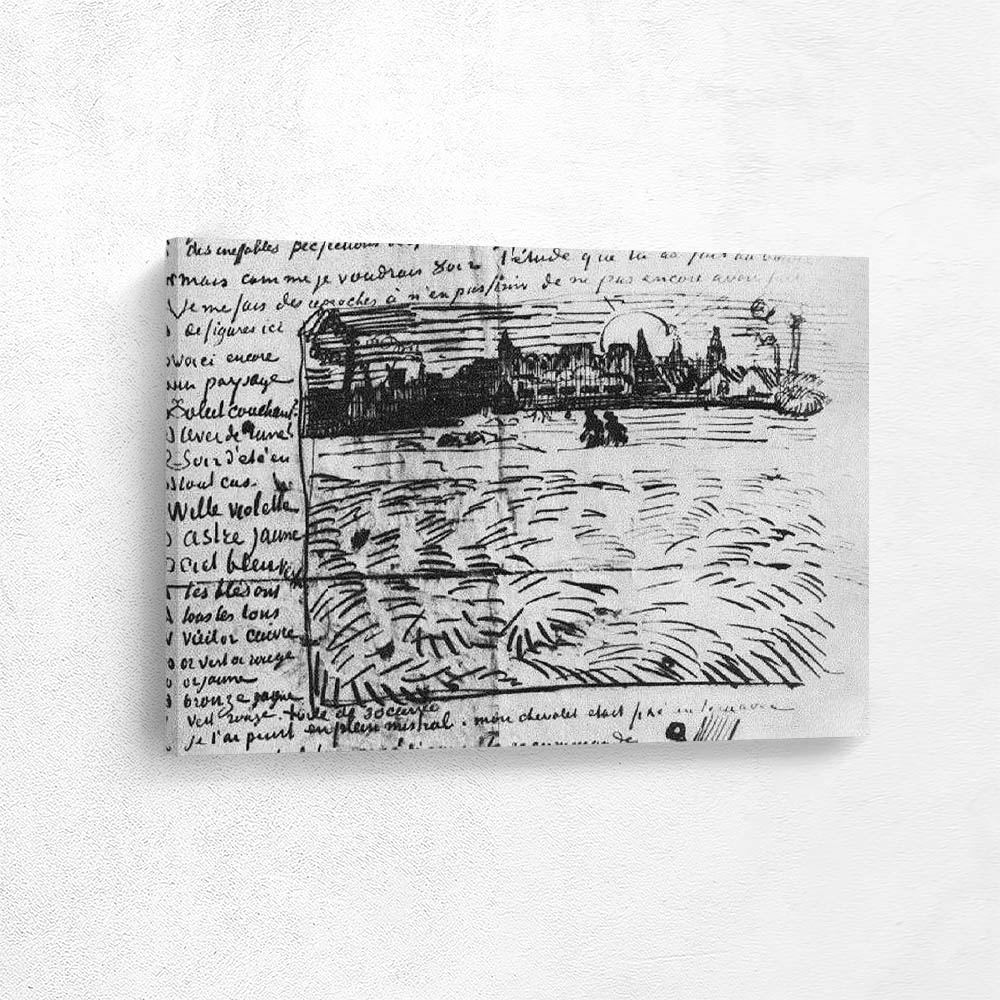 des ineffables perfections
mais comme je voudrais voir l'étude que tu as fais au
Je me fais des reproches à n'en pas finir de ne pas encore avoir fait
de figures ici
Voici encore
un paysage
Soleil couchant?
lever de lune?
Soir d'été en
tout cas.
Ville violette
astre jaune
ciel bleu vert
les blés ont
tous les tons
vieil or cuivre
or vert or rouge
or jaune
bronze jaune
vert rouge. toile de 30 carrée
je l'ai peint en plein mistral. mon chevalet etait fixé en terre avec